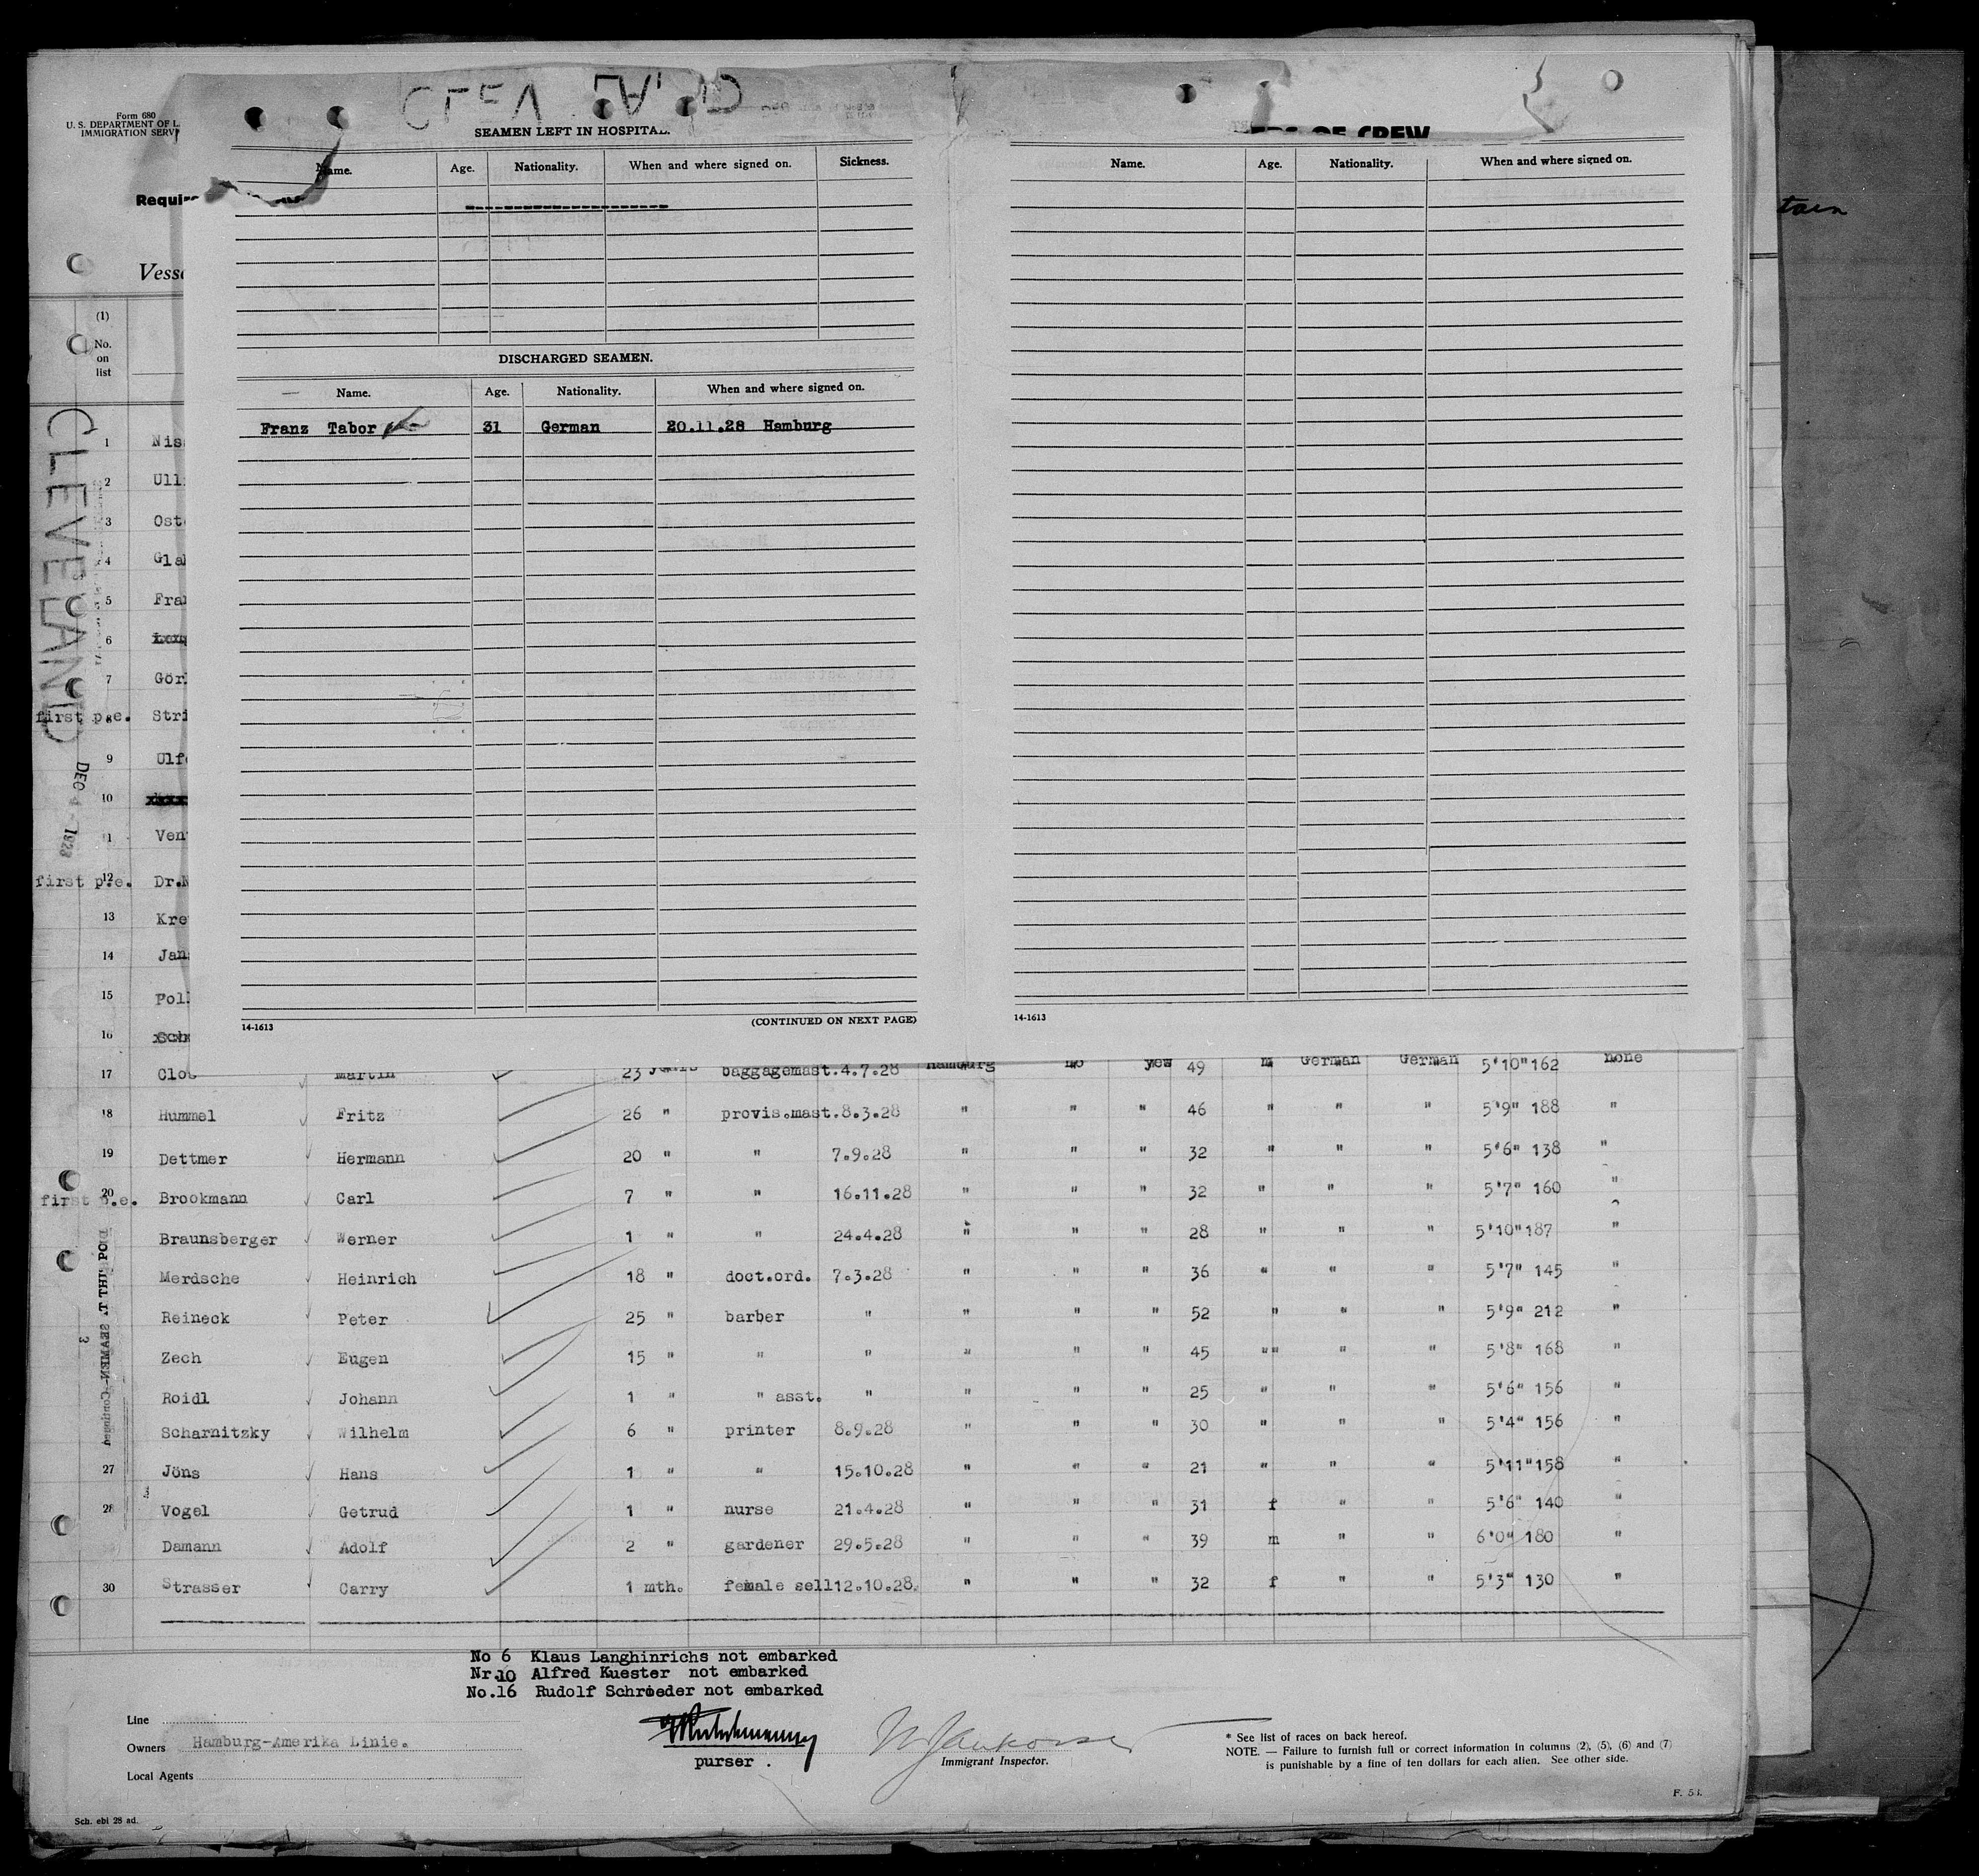 Form 680
U. S. DEPARTMENT OF L
IMMIGRATION SERV
CLEV LAND
SEAMEN LEFT IN HOSPITAL.
Name. Age. Nationality. When and where signed on. Sickness.
OF CREW
Name. Age. Nationality. When and where signed on.
tain
DISCHARGED SEAMEN.
Name. Age. Nationality. When and where signed on.
Franz Tabor 31 German 20.11.28 Hamburg
14-1613 (CONTINUED ON NEXT PAGE)
14-1613
(1)
No.
on
list
CLEVELAND
1 Nis
2 Ull
3 Ost
4 Gla
5 Fra
6
7 Gör
first p.e. 8 Stri
9 Ulf
10
DEC 1928
11 Ven
first p.e. 12 Dr.
13 Kre
14 Jan
15 Pol
16
17 Clo Martin 23 baggagemast. 4.7.28 Hamburg no yes 49 m German German 5'10" 162 none
18 Hummel Fritz 26 " provis.mast. 8.3.28 " " " 46 " " " 5'9" 188 "
19 Dettmer Hermann 20 " " 7.9.28 " " " 32 " " " 5'6" 138 "
first p.e. 20 Brookmann Carl 7 " " 16.11.28 " " " 32 " " " 5'7" 160 "
Braunsberger Werner 1 " " 24.4.28 " " " 28 " " " 5'10" 187 "
Merdsche Heinrich 18 " doct.ord. 7.3.28 " " " 36 " " " 5'7" 145 "
Reineck Peter 25 " barber " " " " 52 " " " 5'9" 212 "
Zech Eugen 15 " " " " " " 45 "" " " 5'8" 168 "
Roidl Johann 1 " " asst. " " " " 25 " " " 5'6" 156 "
Scharnitzky Wilhelm 6 " printer 8.9.28 " " " 30 " " " 5'4" 156 "
27 Jöns Hans 1 " " 15.10.28 " " " 21 " " " 5'11" 158 "
28 Vogel Getrud 1 " nurse 21.4.28 " " " 31 f " " 5'6" 140 "
Damann Adolf 2 " gardener 29.5.28 " " " 39 m " " 6'0" 180 "
30 Strasser Carry 1 mth. female sell 12.10.28. " " " 32 f " " 5'3" 130 "
No 6 Klaus Langhinrichs not embarked
Nr.10 Alfred Kuester not embarked
No.16 Rudolf Schroeder not embarked
Line
Owners Hamburg-Amerika Linie.
Local Agents
purser .
Immigrant Inspector.
* See list of races on back hereof.
NOTE. — Failure to furnish full or correct information in columns (2), (5), (6) and (7)
is punishable by a fine of ten dollars for each alien. See other side.
Sch. ebl 28 ad.